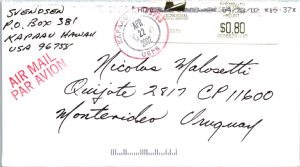 SVENDSEN
P.O. Box 381
KAPAAU HAWAII
USA 96755
APR
22
$0.80
AIR MAIL
PAR AVION
Nicolas Malosetti
Quijote 2817 CP 11600
Montevideo Uruguay